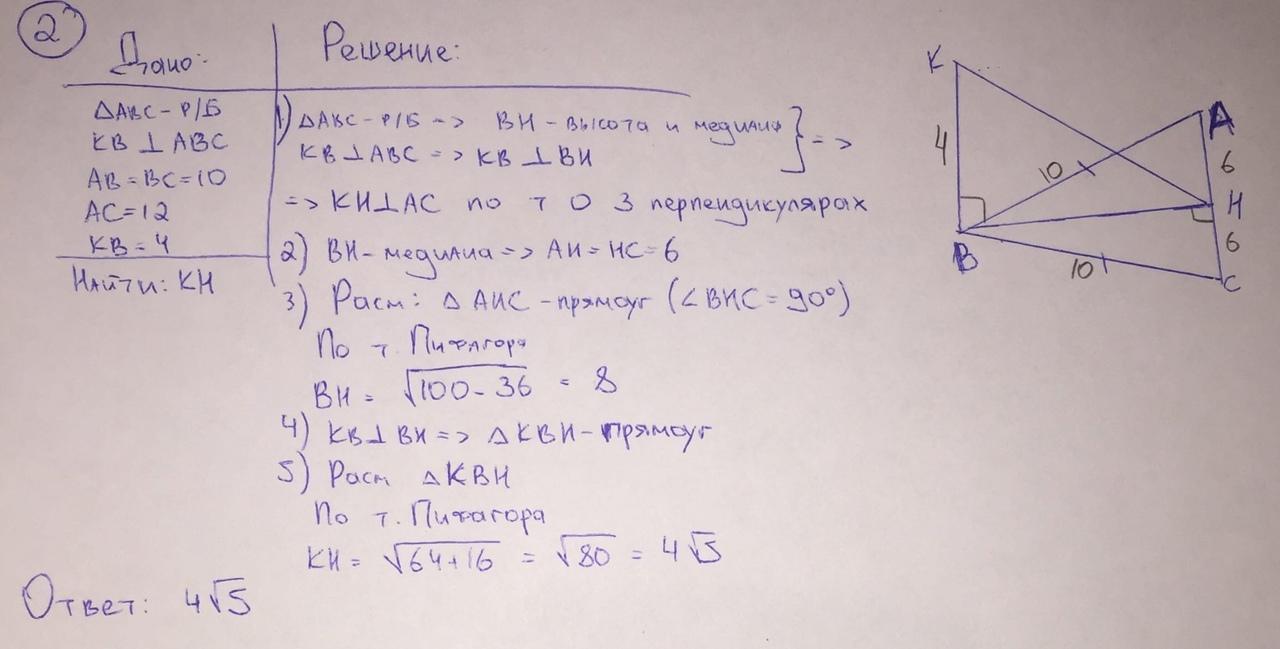 2
Дано:
△ABC - Р/Б
KB ⊥ ABC
AB = BC = 10
AC = 12
KB = 4
Найти: KH
Решение:
1) △ABC - Р/Б => BH - высота и медиана } =>
KB ⊥ ABC => KB ⊥ BH
=> KH ⊥ AC по т о 3 перпендикулярах
2) BH - медиана => AH = HC = 6
3) Расм: △ AHC - прямоуг (∠BHC = 90°)
По т. Пифагора
BH = √100 - 36 = 8
4) KB ⊥ BH => △KBH - прямоуг
5) Расм △KBH
По т. Пифагора
KH = √64+16 = √80 = 4√5
Ответ: 4√5
K
A
4
10
6
H
6
B
10
C